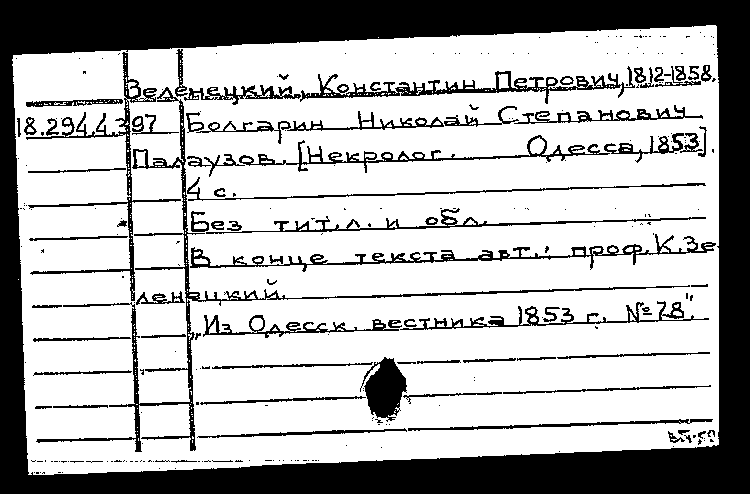 Зеленецкий, Константин Петрович, 1812-1858.
18.294.4.397 Болгарин Николай Степанович
Палаузов. [Некролог. Одесса, 1853].
4 с.
Без тит. л. и обл.
В конце текста авт.: проф. К. Зе-
ленецкий.
„Из Одесск. вестника 1853 г. № 78".